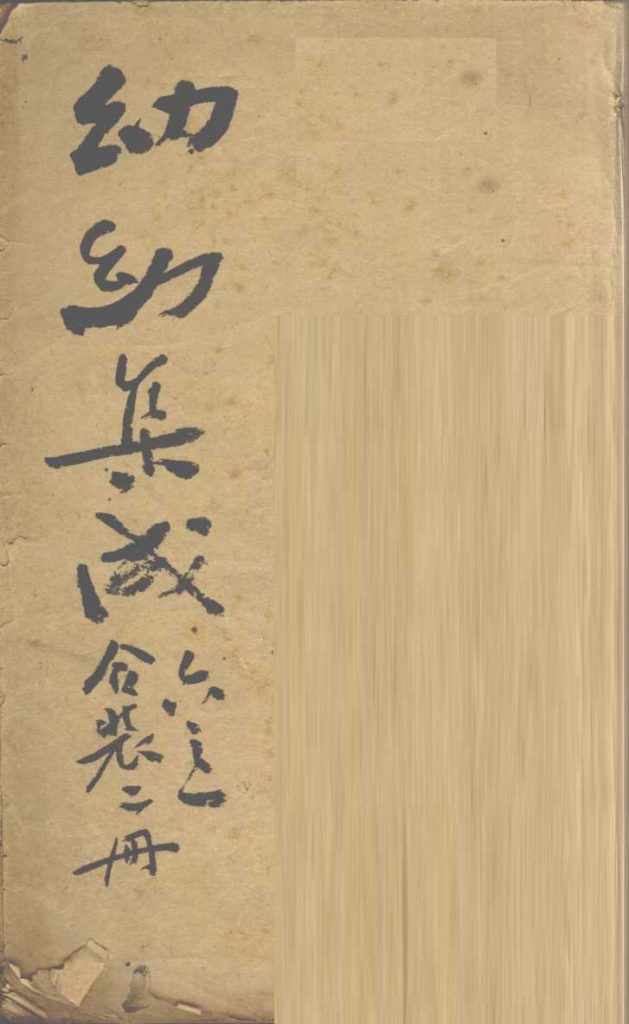 幼幼集成
六之一
合裝二冊